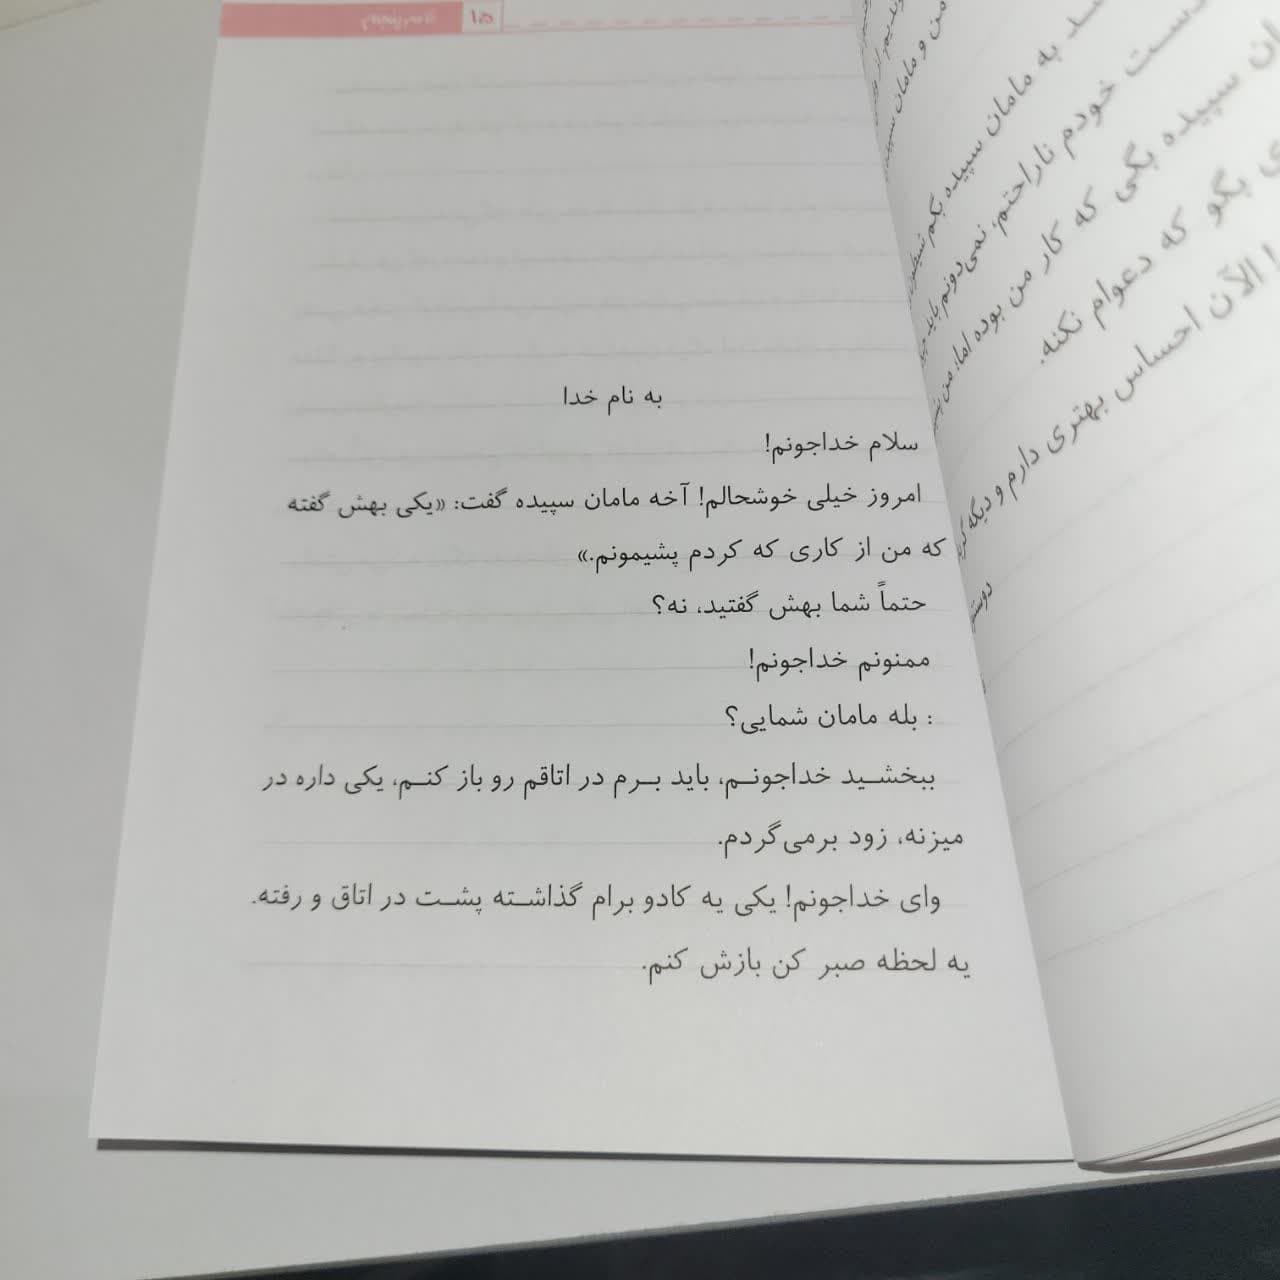 ۱۵
به نام خدا
سلام خداجونم!
امروز خیلی خوشحالم! آخه مامان سپیده گفت: «یکی بهش گفته
که من از کاری که کردم پشیمونم.»
حتماً شما بهش گفتید، نه؟
ممنونم خداجونم!
: بله مامان شمایی؟
ببخشـید خداجونـم، باید بـرم در اتاقم رو باز کنـم، یکی داره در
میزنه، زود برمی‌گردم.
وای خداجونم! یکی یه کادو برام گذاشـته پشـت در اتاق و رفته.
یه لحظه صبر کن بازش کنم.
من و مامان
ـد به مامان سپیده بگم
دسـت خودم ناراحتم، نمی‌دونم باید
ان سپیده بگی که کار من بوده اما، من
ی بگو که دعوام نکنه.
ا الآن احساس بهتری دارم و دیگه